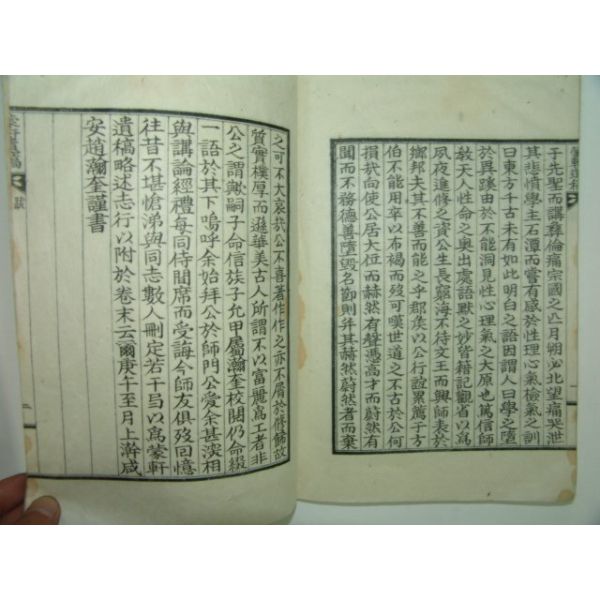 于先聖而講彝倫痛宗國之亡月朔必北望痛哭泄
其悲憤學主石潭而嘗有感於性理心氣檢氣之訓
曰東方千古未有如此明白之語因謂人曰學之墮
於異蹊由於不能洞見性心理氣之大原也篤信師
教天人性命之奧出處語默之妙皆籍記觀省以為
夙夜進修之資公生長窮海不待文王而興師表於
鄉邦夫其不善而能之乎郡矦以公行誼累薦于方
伯不能用卒以布褐而歿可嘆世道之不古於公何
損哉向使公居大位而赫然有聲憑高才而蔚然有
聞而不務德善墮毀名節則并其赫然蔚然者而棄
之可不大哀哉公不喜著作作之亦不屑於修餙故
質實樸厚而遜華美古人所謂不以富麗為工者非
公之謂歟嗣子命信族子允甲屬瀚奎校閱仍命綴
一語於其下嗚呼余始拜公於師門公愛余甚深相
與講論經禮每同侍間席而受誨今師友俱歿回憶
往昔不堪愴涕與同志數人刪定若干㢧以為蒙軒
遺稿略述志行以附於卷末云爾庚午至月上澣咸
安趙瀚奎謹書
跋